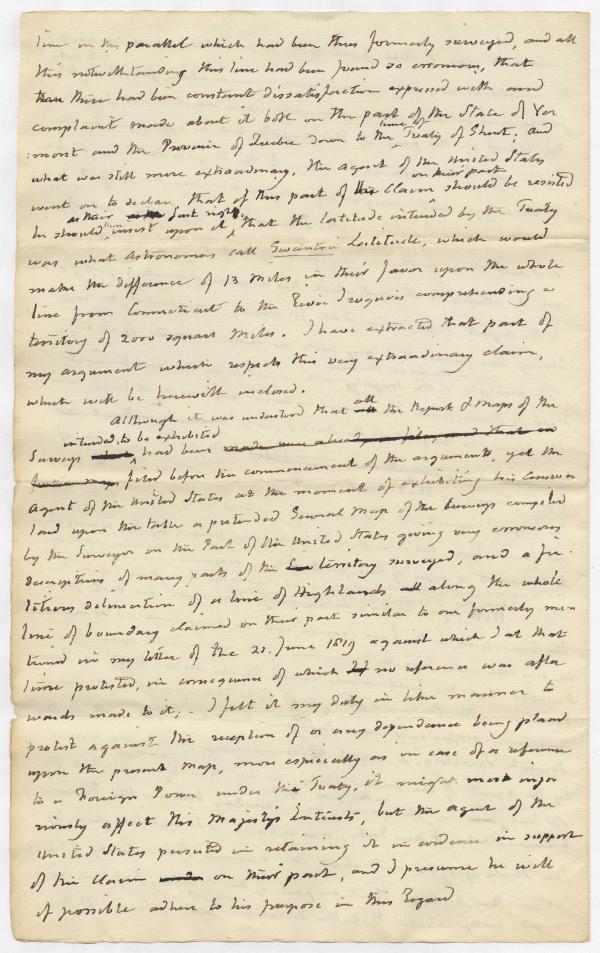 line on this parallel which had been thus formerly surveyed, and all
this notwithstanding this line had been found so erroneous, that
there had been constant dissatisfaction expressed with and
complaint made about it both on the part of the State of Ver
:mont and the Province of Quebec down to the time of Treaty of Ghent; and
what was still more extraordinary, the agent of the United States
went on to declare, that if this part of the Claim on their part should be resisted
he should then insist upon it as their last right, that the latitude intended by the Treaty
was what Astronomers call Geocentric Latitude, which would
make the difference of 13 miles in their favor upon the whole
line from Connecticut to the River Iroquois comprehending a
territory of 2000 square miles. I have extracted that part of
my argument which respects this very extraordinary claim,
which will be herewith inclosed.
Although it was understood that all the Reports & Maps of the
Surveys intended to be exhibited had been made were already on files, and that no
filed before the commencement of the arguments, yet the
Agent of the United States at the moment of exhibiting his answer
laid upon the table a pretended General Map of the Surveys compiled
by the Surveyor on the Part of the United States giving very erroneous
descriptions of many parts of the territory surveyed, and a fic
titious delineation of a line of Highlands all along the whole
line of boundary claimed on their part similar to one formerly men
tioned in my letter of the 21. June 1819 against which I at that
time protested, in consequence of which no reference was after
wards made to it;- I felt it my duty in like manner to
protest against the reception of or any dependence being placed
upon the present map, more especially as in case of a reference
to a Foreign Power under the Treaty, it might most injur
riously affect His Majesty's Interests, but the agent of the
United States persisted in retaining it in evidence in support
of the Claim on their part, and I presume he will
if possible adhere to his purpose in this Regard